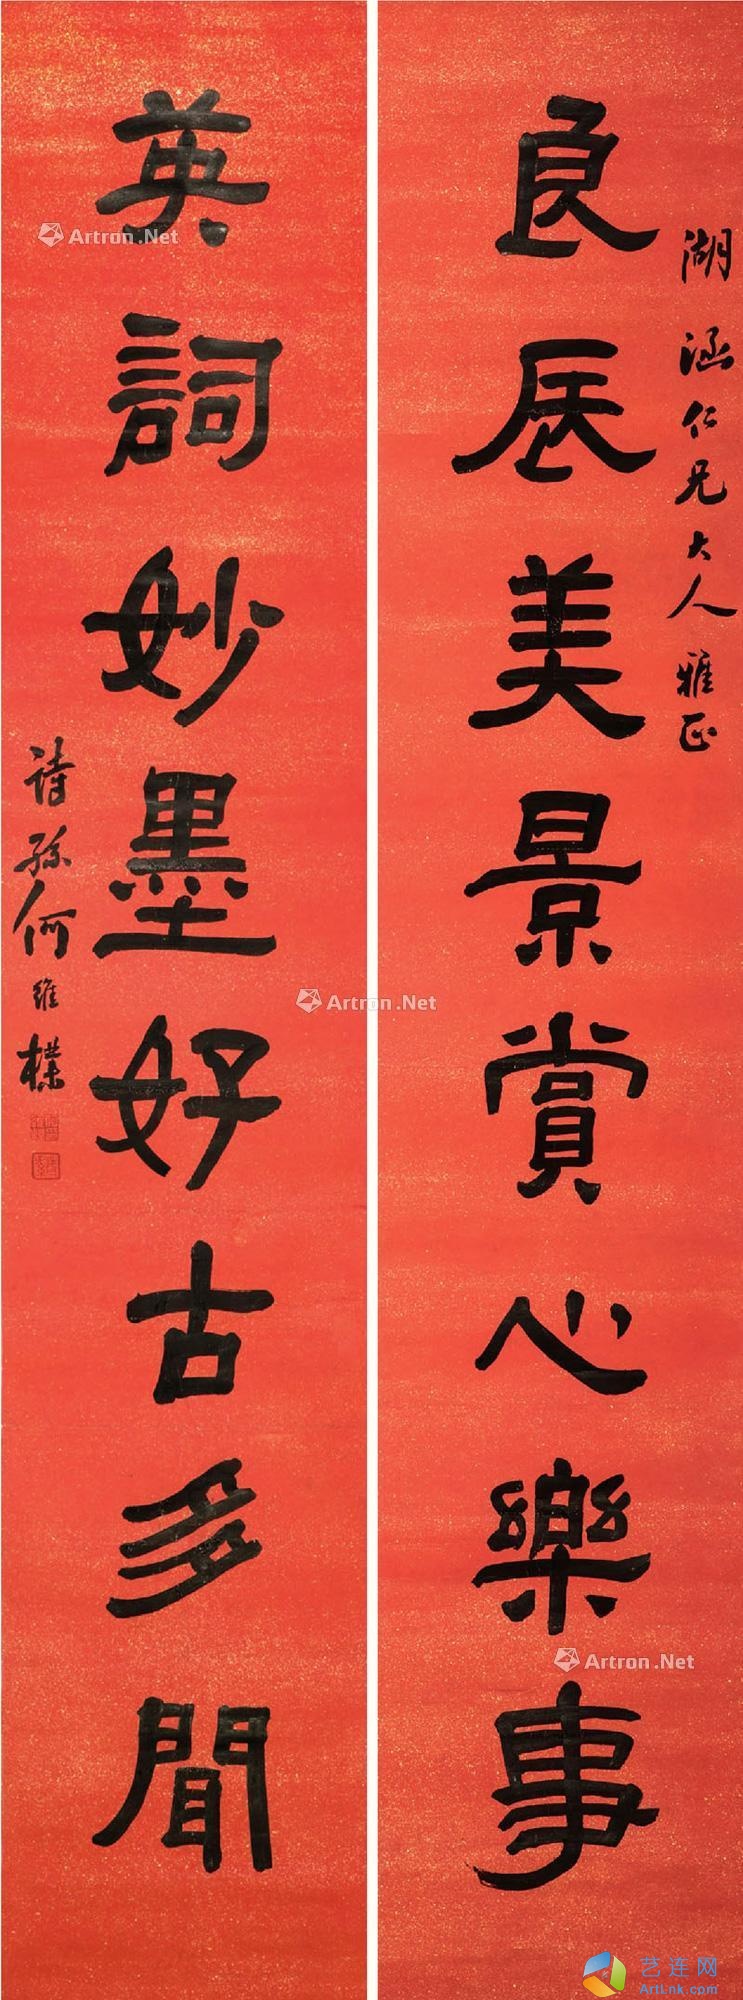 湖涵仁兄大人雅正
良辰美景賞心樂事
英詞妙墨好古多聞
詩孫何維樸
Artron.Net
Artron.Net
Artron.Net
艺连网
ArtLnk.com